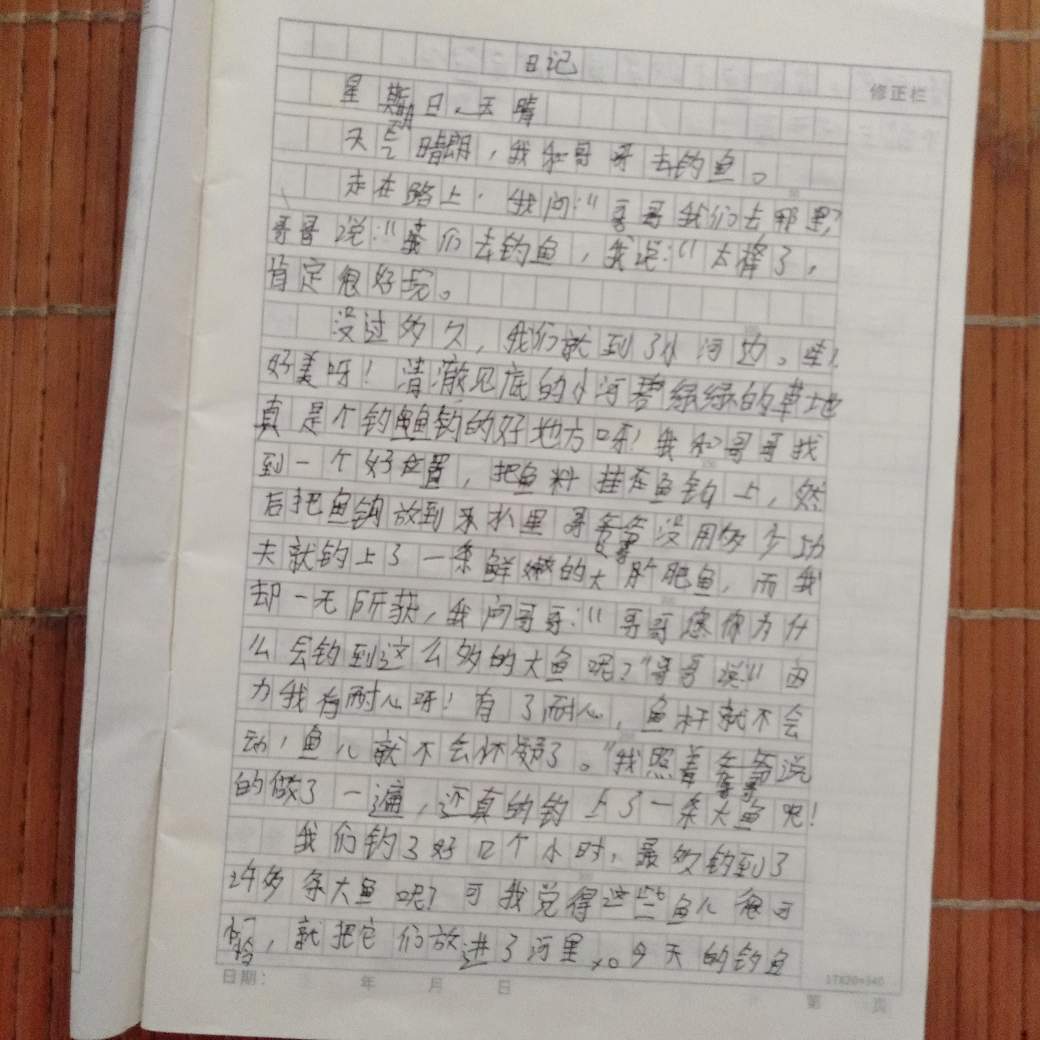 日记
修正栏
星期日、天晴
天气晴朗，我和哥哥去钓鱼。
走在路上．我问：“哥哥我们去那里？
哥哥说：“我们去钓鱼，我说：“太棒了，
肯定很好玩。
没过多久，我们就到了小河边。哇！
好美呀！清澈见底的小河碧绿绿的草地
真是个钓鱼钓的好地方呀！我和哥哥找
到一个好位置，把鱼料挂在鱼钩上，然
后把鱼钩放到水里哥哥没用多少功
夫就钓上了一条鲜嫩的大肥鱼，而我
却一无所获，我问哥哥：“哥哥您你为什
么会钓到这么多的大鱼呢？”哥哥说：“因
为我有耐心呀！有了耐心，鱼杆就不会
动，鱼儿就不会怀疑了。”我照着哥哥说
的做了一遍，还真的钓上了一条大鱼呢！
我们钓了好几个小时，最多钓到了
24多条大鱼呢？可我觉得这些鱼儿很可
怜，就把它们放进了河里。今天的钓鱼
日期： 年 月 日
第 页